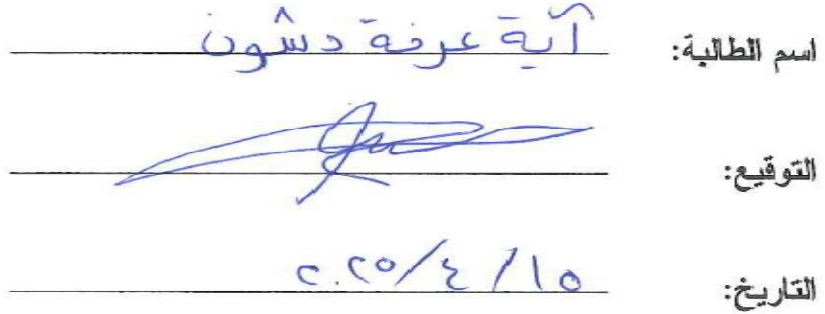 اسم الطالبة: آية عرفة دشون
التوقيع:
التاريخ: ١٥/٤/٢٠٢٥